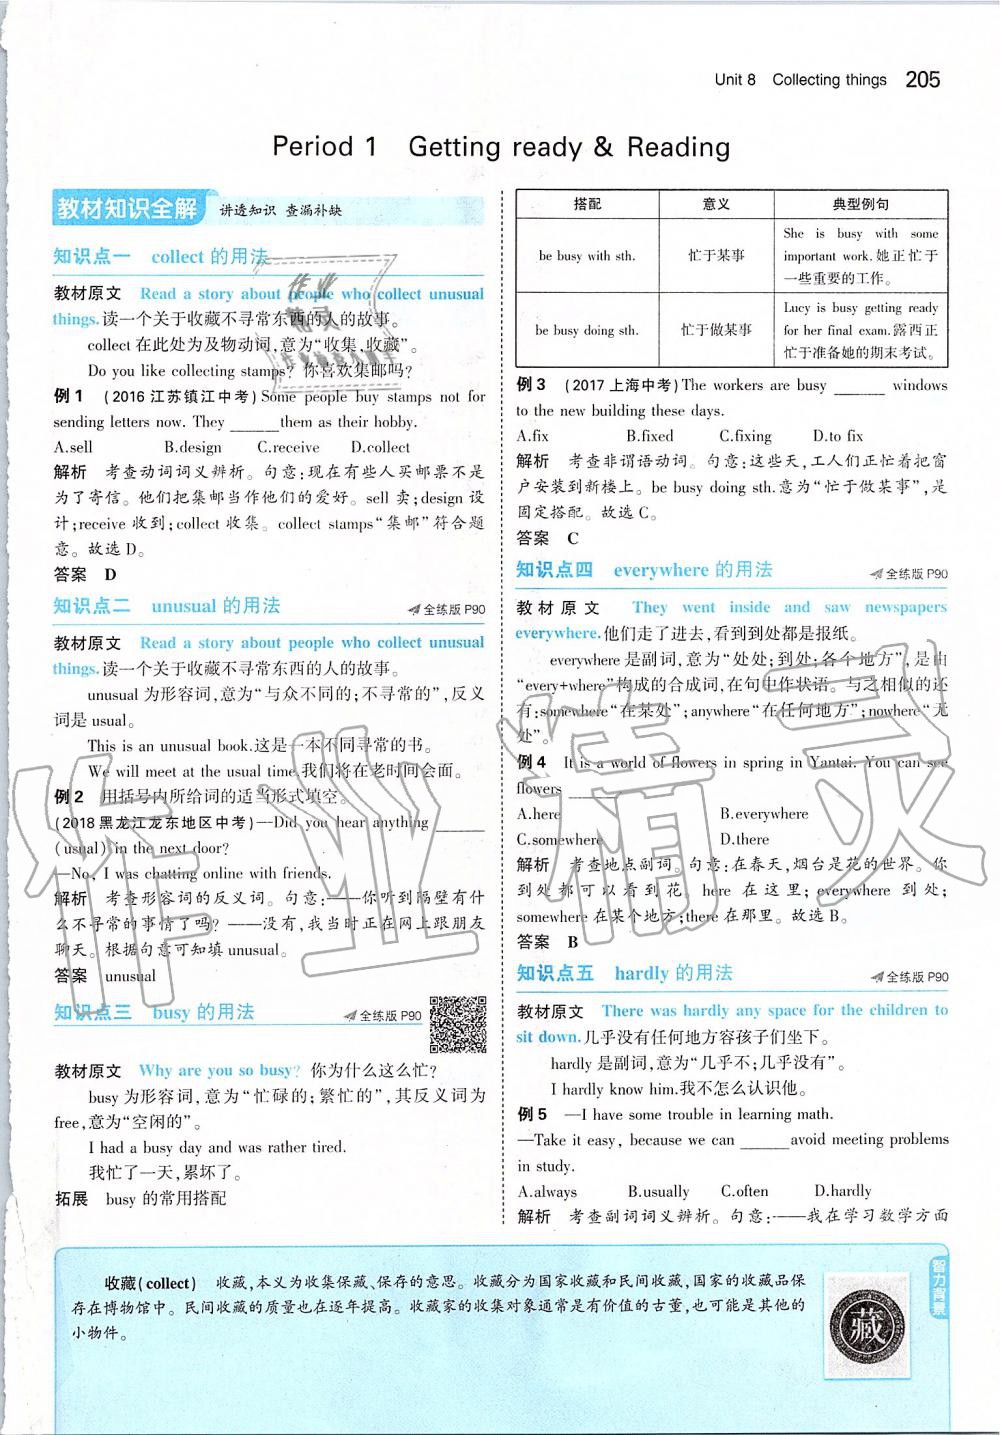 Unit 8 Collecting things 205
Period 1 Getting ready & Reading
教材知识全解 讲透知识 查漏补缺
知识点一 collect 的用法
教材原文 Read a story about people who collect unusual
things.读一个关于收藏不寻常东西的人的故事。
collect 在此处为及物动词,意为“收集,收藏”。
Do you like collecting stamps? 你喜欢集邮吗?
例 1 (2016 江苏镇江中考)Some people buy stamps not for
sending letters now. They ______them as their hobby.
A.sell B.design C.receive D.collect
解析 考查动词词义辨析。句意:现在有些人买邮票不是
为了寄信。他们把集邮当作他们的爱好。sell 卖;design 设
计;receive 收到;collect 收集。collect stamps“集邮”符合题
意。故选 D。
答案 D
知识点二 unusual 的用法 全练版 P90
教材原文 Read a story about people who collect unusual
things.读一个关于收藏不寻常东西的人的故事。
unusual 为形容词,意为“与众不同的;不寻常的”,反义
词是 usual。
This is an unusual book.这是一本不同寻常的书。
We will meet at the usual time.我们将在老时间会面。
例 2 用括号内所给词的适当形式填空。
(2018 黑龙江龙东地区中考)—Did you hear anything ______
(usual) in the next door?
—No, I was chatting online with friends.
解析 考查形容词的反义词。句意:——你听到隔壁有什
么不寻常的事情了吗? ——没有,我当时正在网上跟朋友
聊天。根据句意可知填 unusual。
答案 unusual
知识点三 busy 的用法 全练版 P90
教材原文 Why are you so busy? 你为什么这么忙?
busy 为形容词,意为“忙碌的;繁忙的”,其反义词为
free,意为“空闲的”。
I had a busy day and was rather tired.
我忙了一天,累坏了。
拓展 busy 的常用搭配
搭配 意义 典型例句
be busy with sth. 忙于某事 She is busy with some
important work.她正忙于
一些重要的工作。
be busy doing sth. 忙于做某事 Lucy is busy getting ready
for her final exam.露西正
忙于准备她的期末考试。
例 3 (2017 上海中考)The workers are busy ______ windows
to the new building these days.
A.fix B.fixed C.fixing D.to fix
解析 考查非谓语动词。句意:这些天,工人们正忙着把窗
户安装到新楼上。be busy doing sth.意为“忙于做某事”,是
固定搭配。故选 C。
答案 C
知识点四 everywhere 的用法 全练版 P90
教材原文 They went inside and saw newspapers
everywhere.他们走了进去,看到到处都是报纸。
everywhere 是副词,意为“处处;到处;各个地方”,是由
“every+where”构成的合成词,在句中作状语。与之相似的还
有:somewhere“在某处”;anywhere“在任何地方”;nowhere“无
处”。
例 4 It is a world of flowers in spring in Yantai. You can see
flowers ______
A.here B.everywhere
C.somewhere D.there
解析 考查地点副词。句意:在春天,烟台是花的世界。你
到处都可以看到花。here 在这里; everywhere 到处;
somewhere 在某个地方;there 在那里。故选 B。
答案 B
知识点五 hardly 的用法 全练版 P90
教材原文 There was hardly any space for the children to
sit down.几乎没有任何地方容孩子们坐下。
hardly 是副词,意为“几乎不;几乎没有”。
I hardly know him.我不怎么认识他。
例 5 —I have some trouble in learning math.
—Take it easy, because we can ______avoid meeting problems
in study.
A.always B.usually C.often D.hardly
解析 考查副词词义辨析。句意:——我在学习数学方面
收藏(collect) 收藏,本义为收集保藏、保存的意思。收藏分为国家收藏和民间收藏,国家的收藏品保
存在博物馆中。民间收藏的质量也在逐年提高。收藏家的收集对象通常是有价值的古董,也可能是其他的
小物件。
智力背景
藏
作业精灵